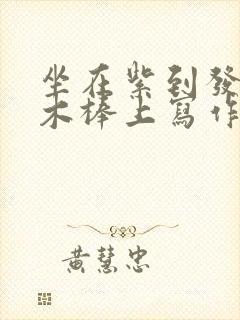 坐在紫到發
木棒上寫作
黃慧忠